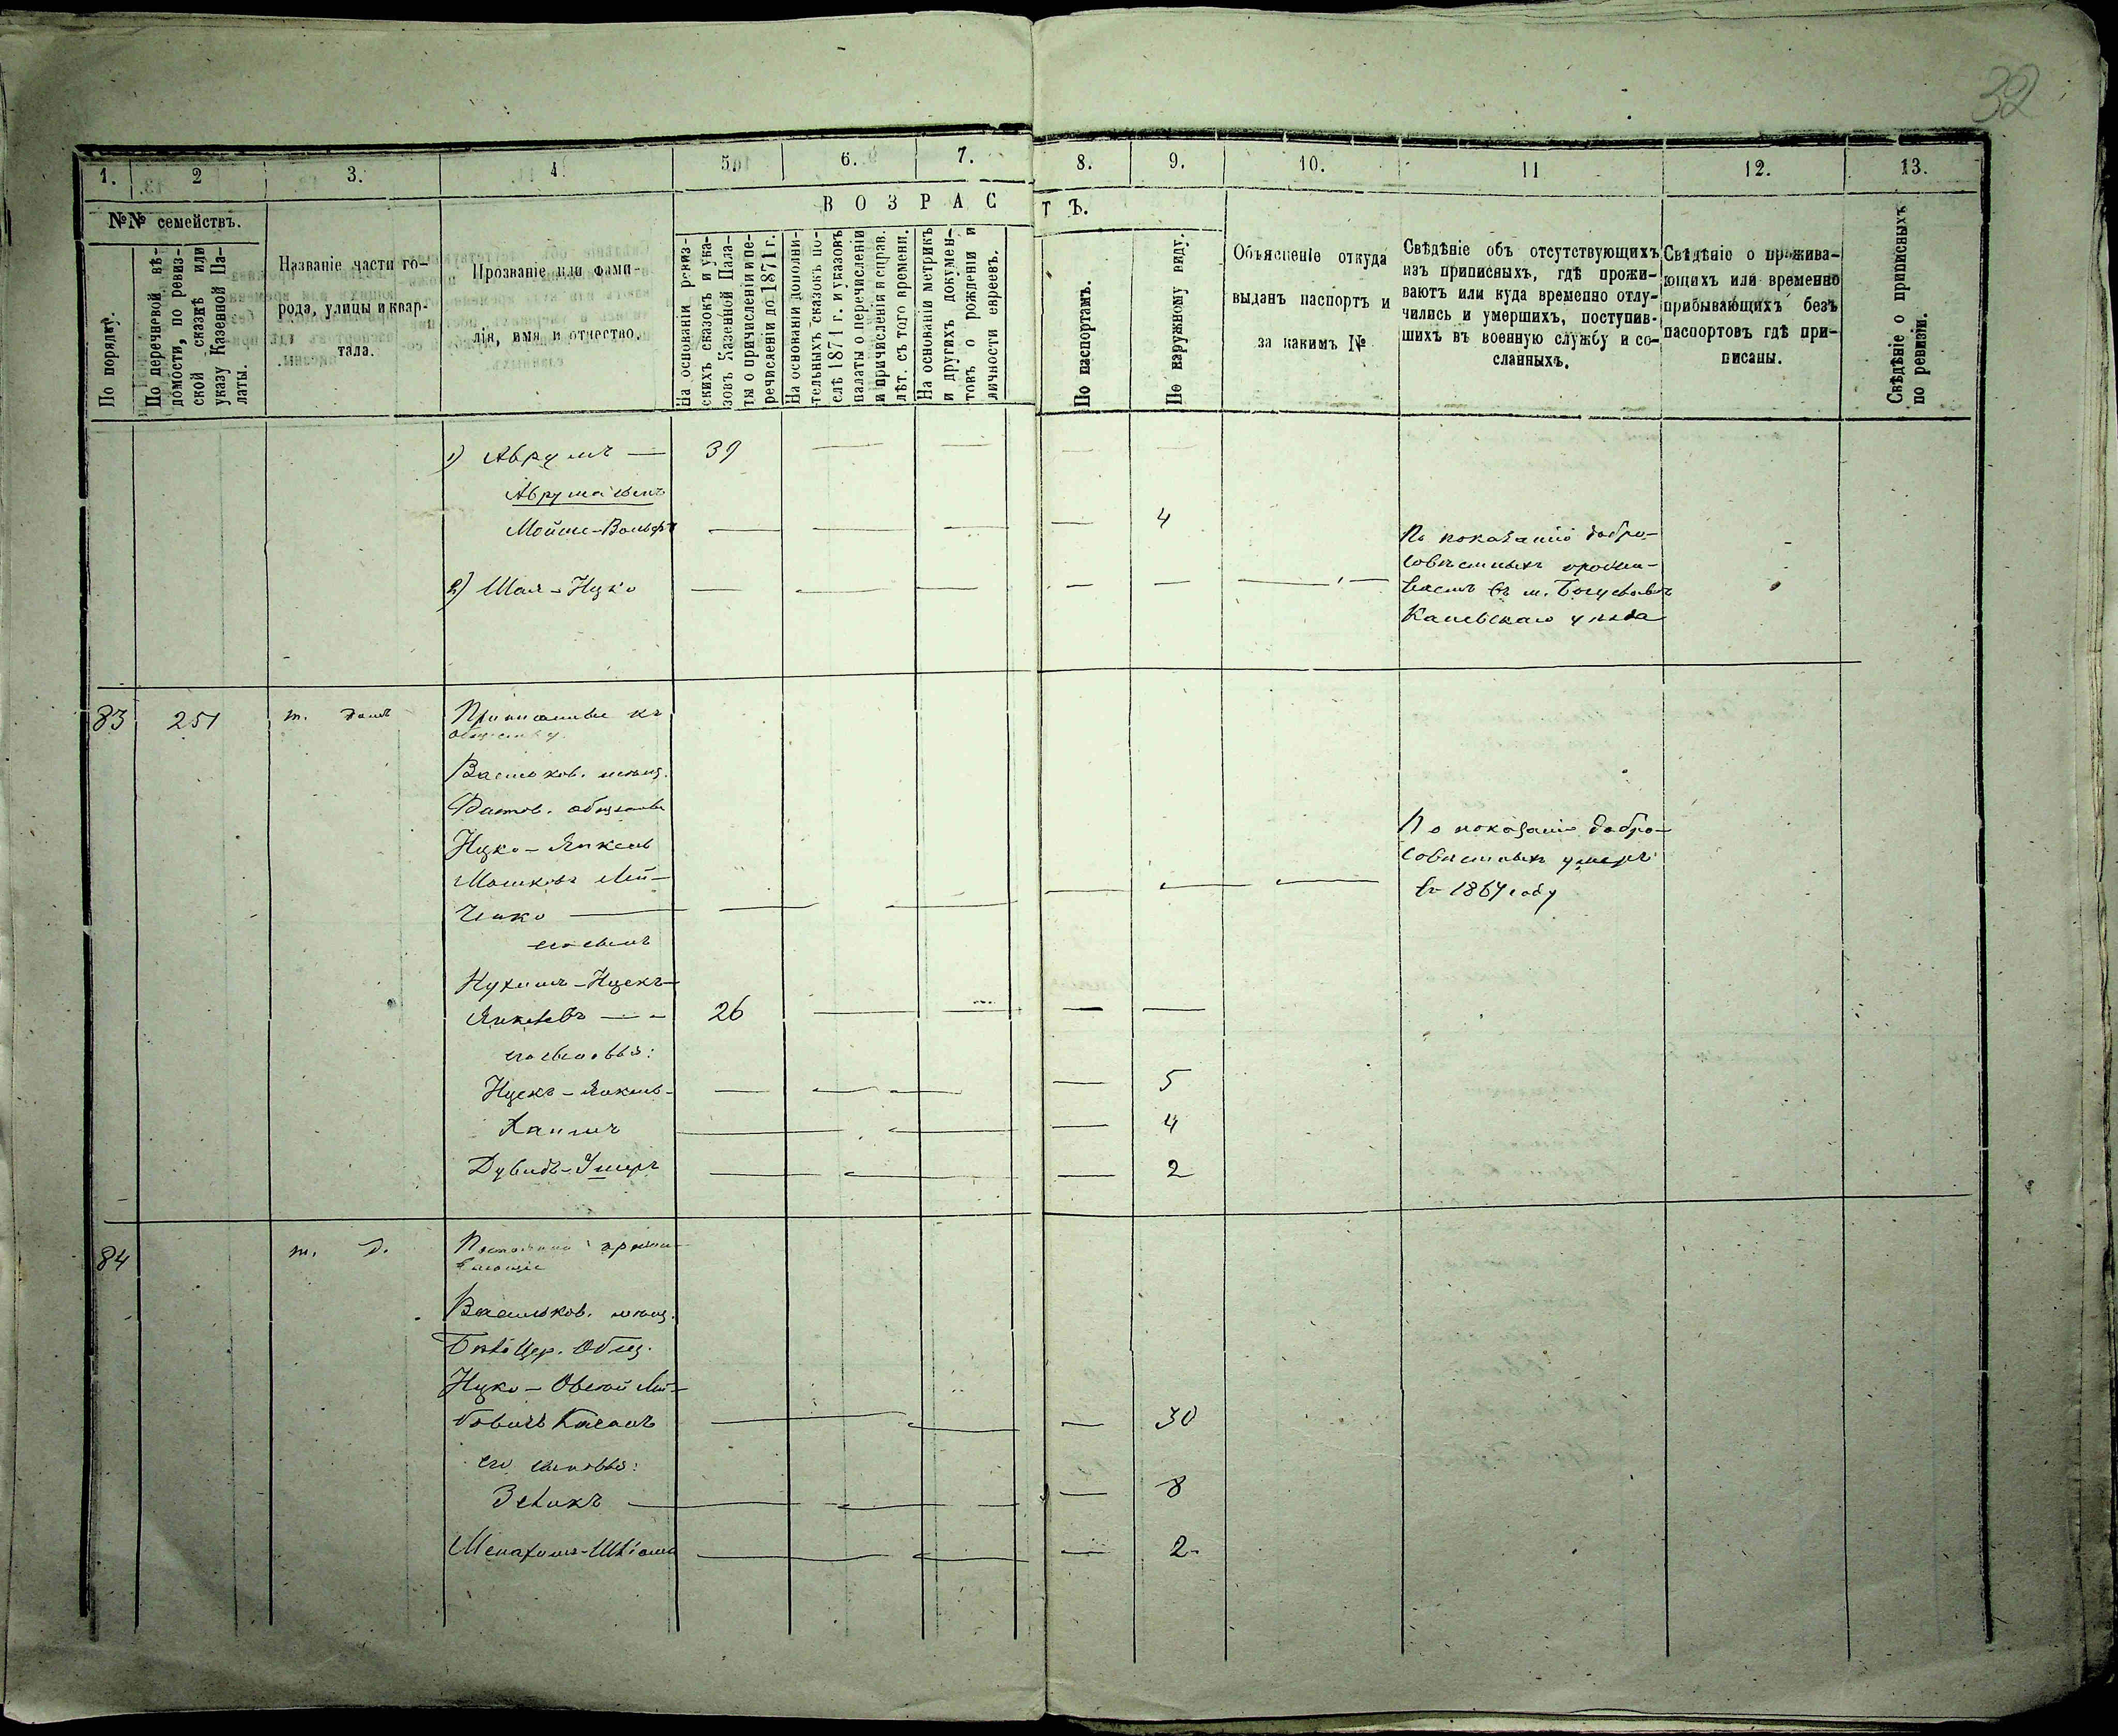 32
1. 2 3. 4. 5. 6. 7. 8. 9. 10. 11 12. 13.
№№ семействъ.
По порядку.
По перечневой вѣ-
домости, по ревиз-
ской сказкѣ или
указу Казенной Па-
латы.
Названіе части го-
рода, улицы и квар-
тала.
Прозваніе или фами-
лія, имя и отчество.
ВОЗРАСТЪ.
На основаніи ревиз-
скихъ сказокъ и ука-
зовъ Казенной Пала-
ты о причисленіи и пе-
речислени до 1871 г.
На основаніи дополни-
тельныхъ сказокъ по-
слѣ 1871 г. и указовъ
палаты о перечисленіи
и причисленія и справ.
лѣт. съ того времени.
На основаніи метрикъ
и другихъ докумен-
товъ о рожденіи и
личности евреевъ.
По паспортамъ.
По наружному виду.
Объясненіе откуда
выданъ паспортъ и
за какимъ №
Свѣдѣніе объ отсутствующихъ
изъ приписныхъ, гдѣ прожи-
ваютъ или куда временно отлу-
чились и умершихъ, поступив-
шихъ въ военную службу и со-
сланныхъ.
Свѣдѣніе о прожива-
ющихъ или временно
прибывающихъ безъ
паспортовъ гдѣ при-
писаны.
Свѣдѣніе о приписныхъ
по ревизіи.
1) Аврумъ — 39
Аврума сынъ
Мойше-Вольфъ 4
2) Шая-Ицко
По показанію добро-
совѣстныхъ прожи-
ваетъ въ м. Богуславѣ
Каневскаго уѣзда
83 251 т. домъ Приписанные къ
обществу
Васильков. мѣщ.
Ицко-Янкель
Мошковъ Лей-
его сынъ
Нухимъ-Ицекъ-
Янкелевъ — 26
его сыновья:
Ицекъ-Янкель- 5
Хаимъ 4
Дувидъ-Ушеръ 2
По показанію добро-
совѣстныхъ умеръ
въ 1864 году
84 т. д. Постоянно прожи-
вающіе
Васильков. мѣщ.
БѣлоЦер. Общ.
Ицко-Овсей Лей-
бовичъ 30
его сыновья:
Зеликъ 8
Менахимъ-Шліома 2